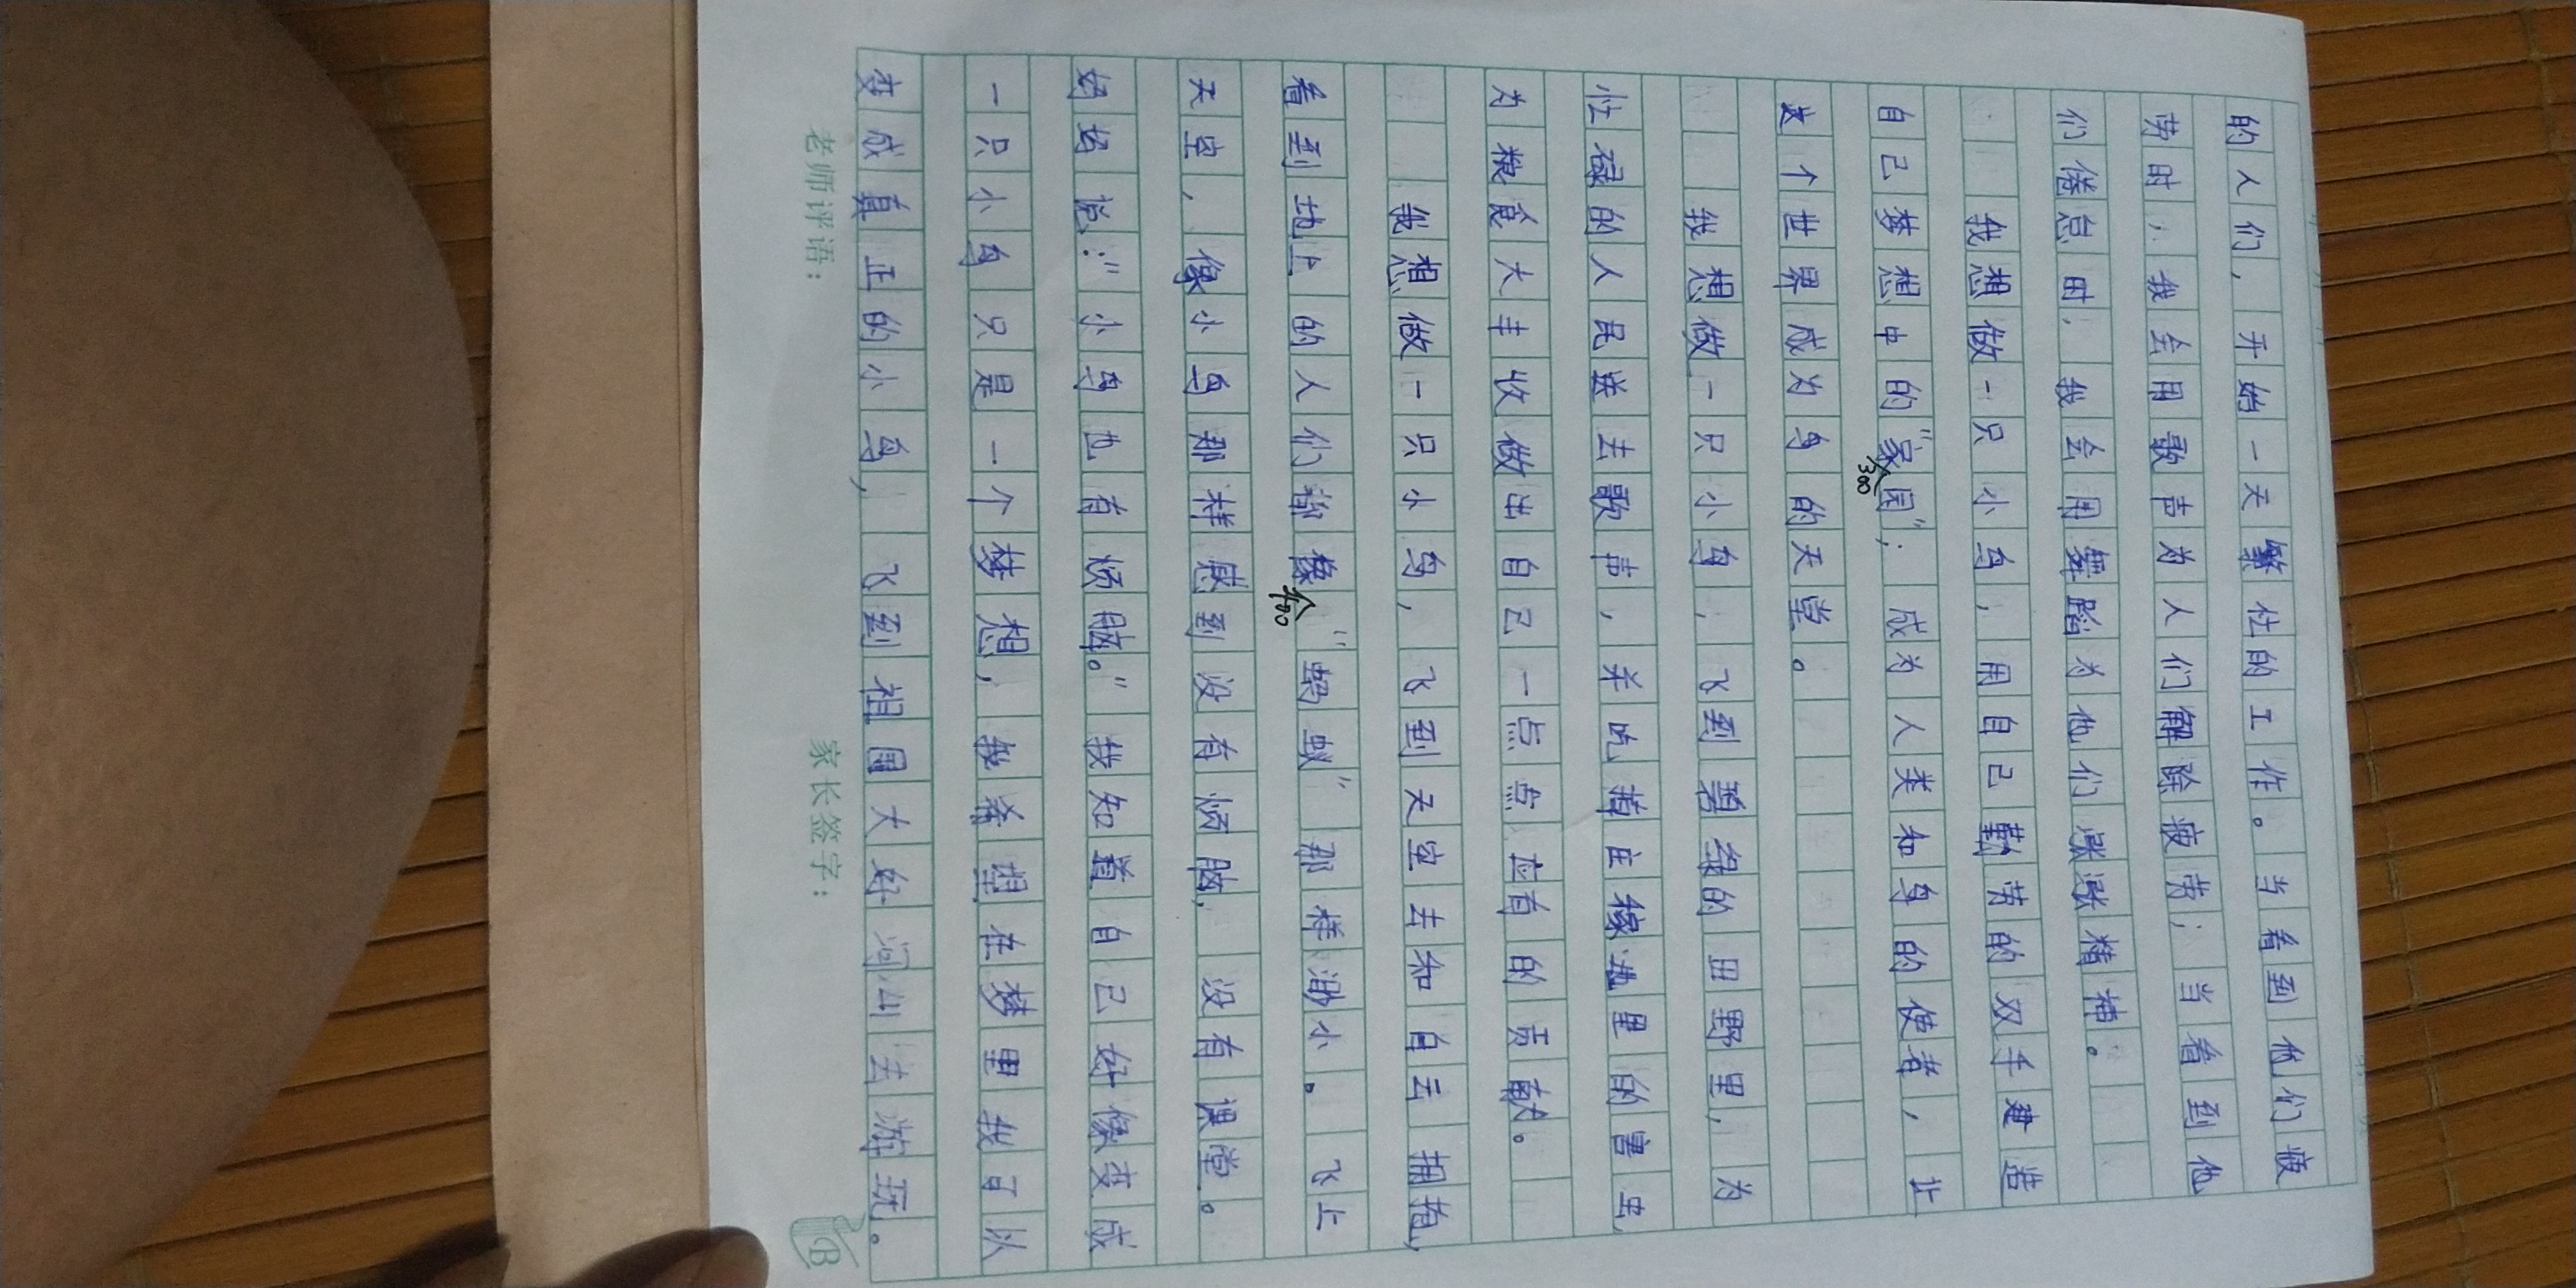 的人们，开始一天繁忙的工作。当看到他们疲
劳时，我会用歌声为人们解除疲劳；当看到他
们倦怠时，我会用舞蹈为他们涨涨精神。
我想做一只小鸟，用自己勤劳的双手建造
自己梦想中的“家园”；成为人类和鸟的使者，让
300
这个世界成为鸟的天堂。
我想做一只小鸟，飞到碧绿的田野里，为
忙碌的人民送去歌声，杀吃掉庄稼地里的害虫
为粮食大丰收做出自己一点点应有的贡献。
我想做一只小鸟，飞到天空去和白云拥抱，
看到地上的人们都像“蚂蚁”那样渺小。飞上
400
天空，像小鸟那样感到没有烦脑，没有课堂。
妈妈说：“小鸟也有烦脑。”我知道自己好像变成
一只小鸟只是一个梦想，我希望在梦里我可以
变成真正的小鸟，飞到祖国大好河山去游玩。
老师评语： 家长签字：
B